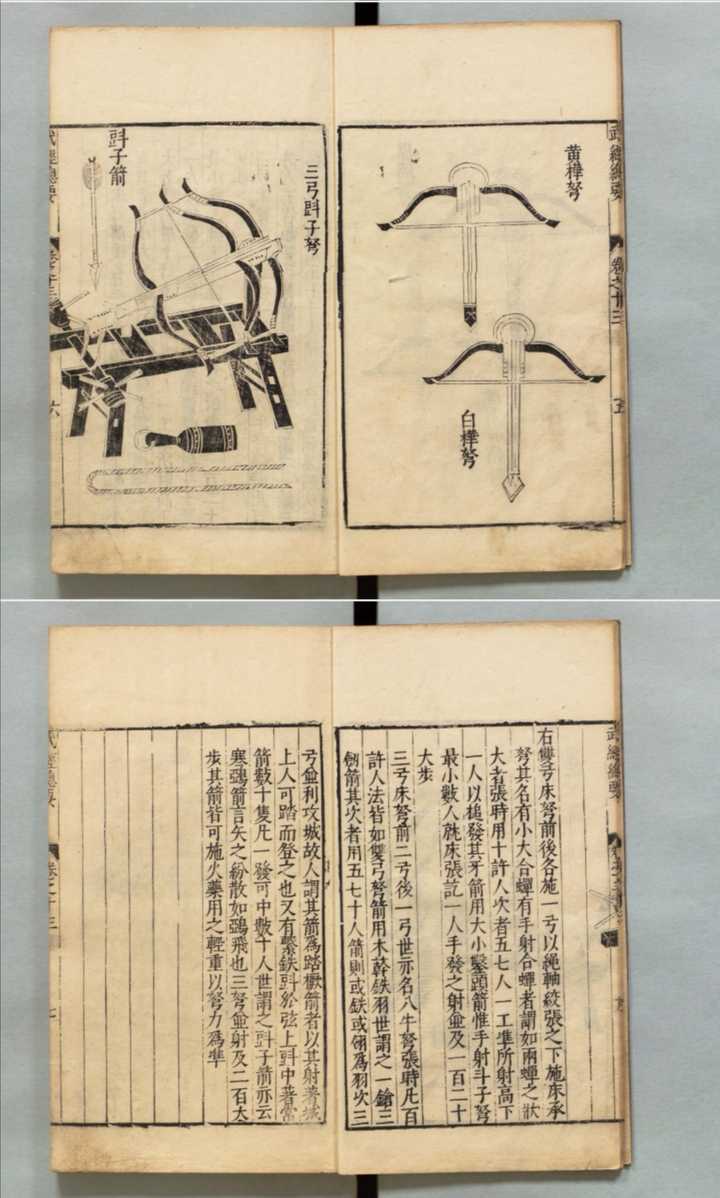 黄樺弩
白樺弩
三弓㪷子弩
㪷子箭
武經總要
卷之十三
五
武經總要
六
右雙弓床弩前後各施一弓以繩軸絞張之下施床承
弩其名有小大合蟬有手射合蟬者謂如兩蟬之狀
大者張時用十許人次者五七人一工準所射高下
一人以槌發其牙箭用大小鑿頭箭惟手射斗子弩
最小數人就床張訖一人手發之射並及一百二十
大步
三弓床弩前二弓後一弓世亦名八牛弩張時凡百
許人法皆如雙弓弩箭用木幹鉄羽世謂之一鎗三
劒箭其次者用五七十人箭則或鉄或翎為羽次三
弓並利攻城故人謂其箭為踏橛箭者以其射著城
上人可踏而登之也又有繫鉄㪷於弦上㪷中著常
箭數十隻凡一發可中數十人世謂之㪷子箭亦云
寒鴉箭言矢之紛散如鴉飛也三弩並射及二百大
步其箭皆可施火藥用之輕重以弩力為準
武經總要
武經總要
卷之十三
七